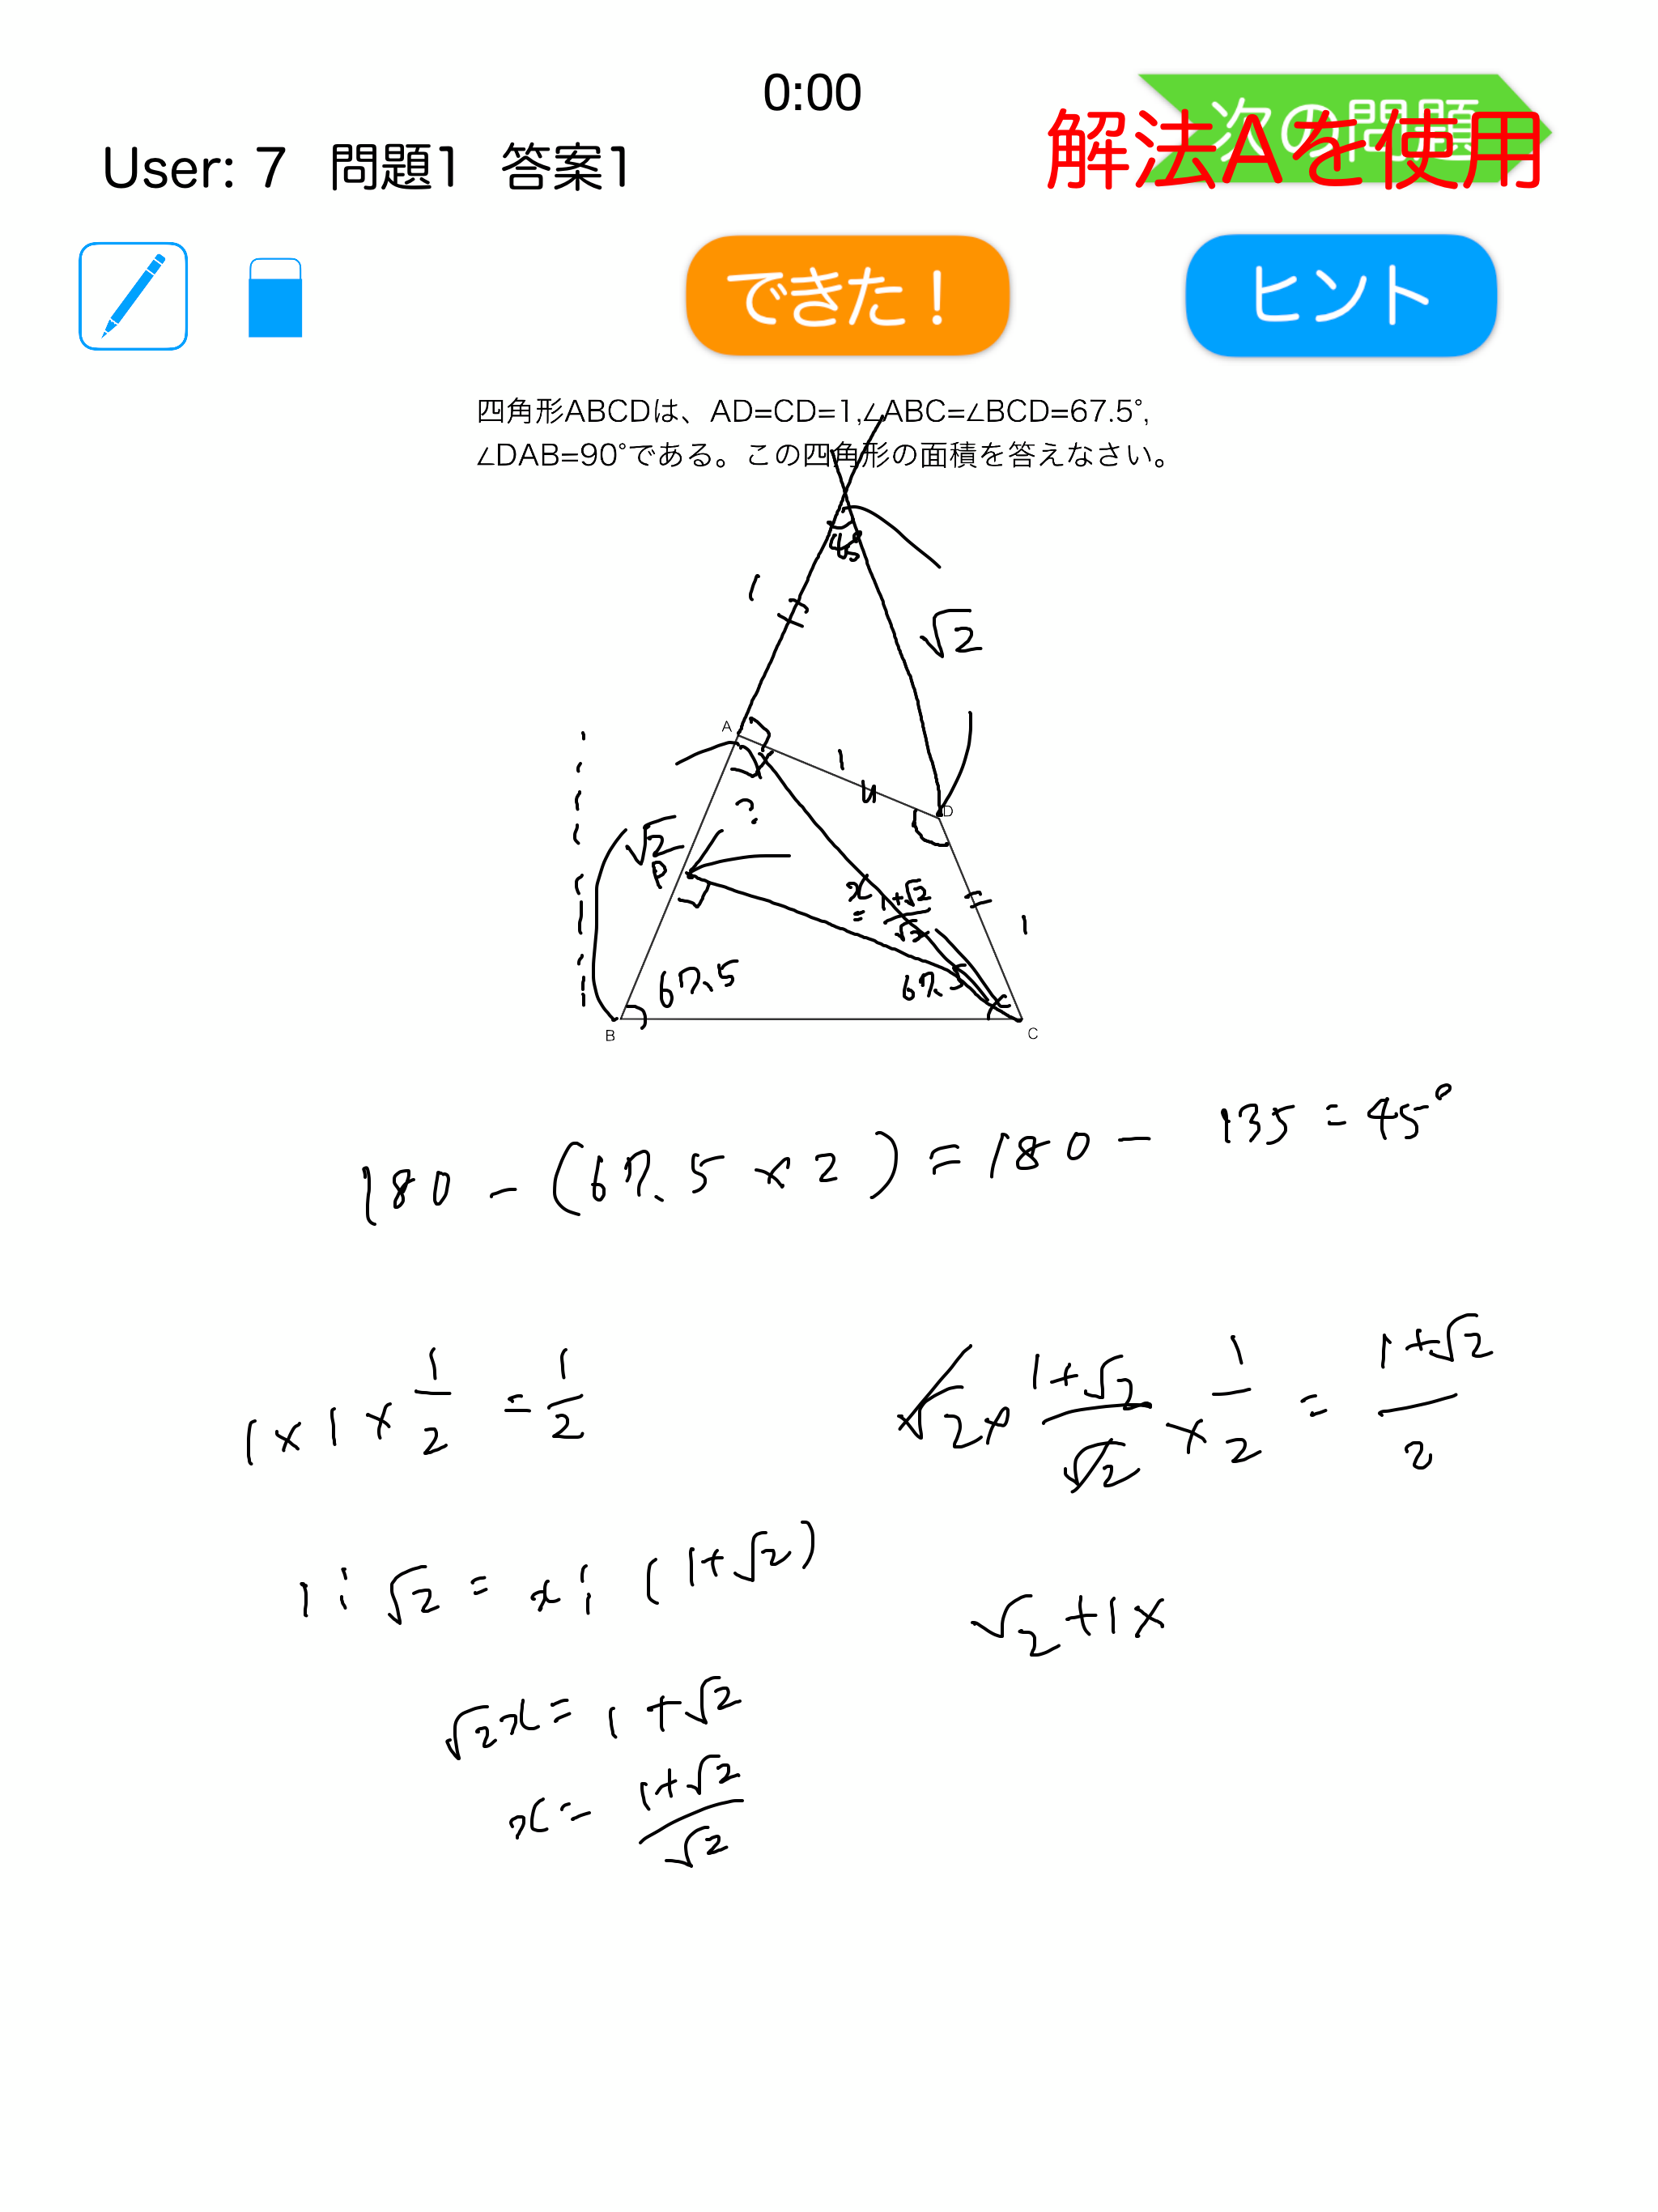 0:00
User: 7 問題1 答案1
次の問題
解法Aを使用
できた！
ヒント
四角形ABCDは、AD=CD=1,∠ABC=∠BCD=67.5°,
∠DAB=90°である。この四角形の面積を答えなさい。
45°
1
√2
A
1
D
?
√2
P
x = (1+√2)/√2
1
67.5
67.5
B
C
180 - (67.5 × 2) = 180 - 135 = 45°
1 × 1 × 1/2 = 1/2
√2 × (1+√2)/√2 × 1/2 = (1+√2)/2
1 : √2 = x : (1+√2)
√2+1×
√2x = 1+√2
x = (1+√2)/√2